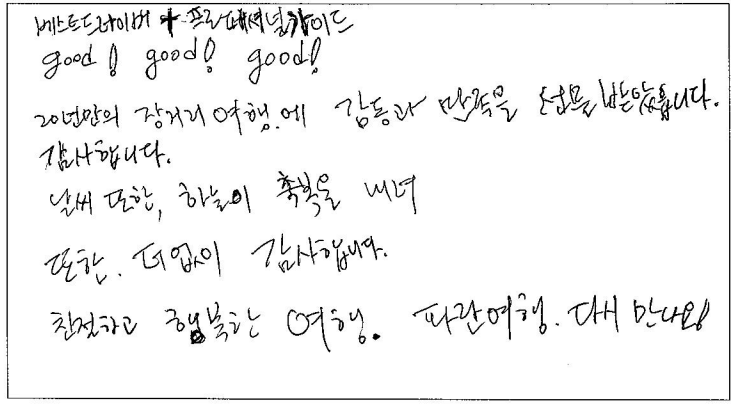 베스트드라이버 + 프로패셔널가이드
good! good! good!
20년만의 장거리 여행.에 감동과 만족을 선물 받았습니다.
감사합니다.
날씨 또한, 하늘이 축복을 내려
또한. 더없이 감사합니다.
친절하고 행복한 여행. 파란여행. 다시 만나요!